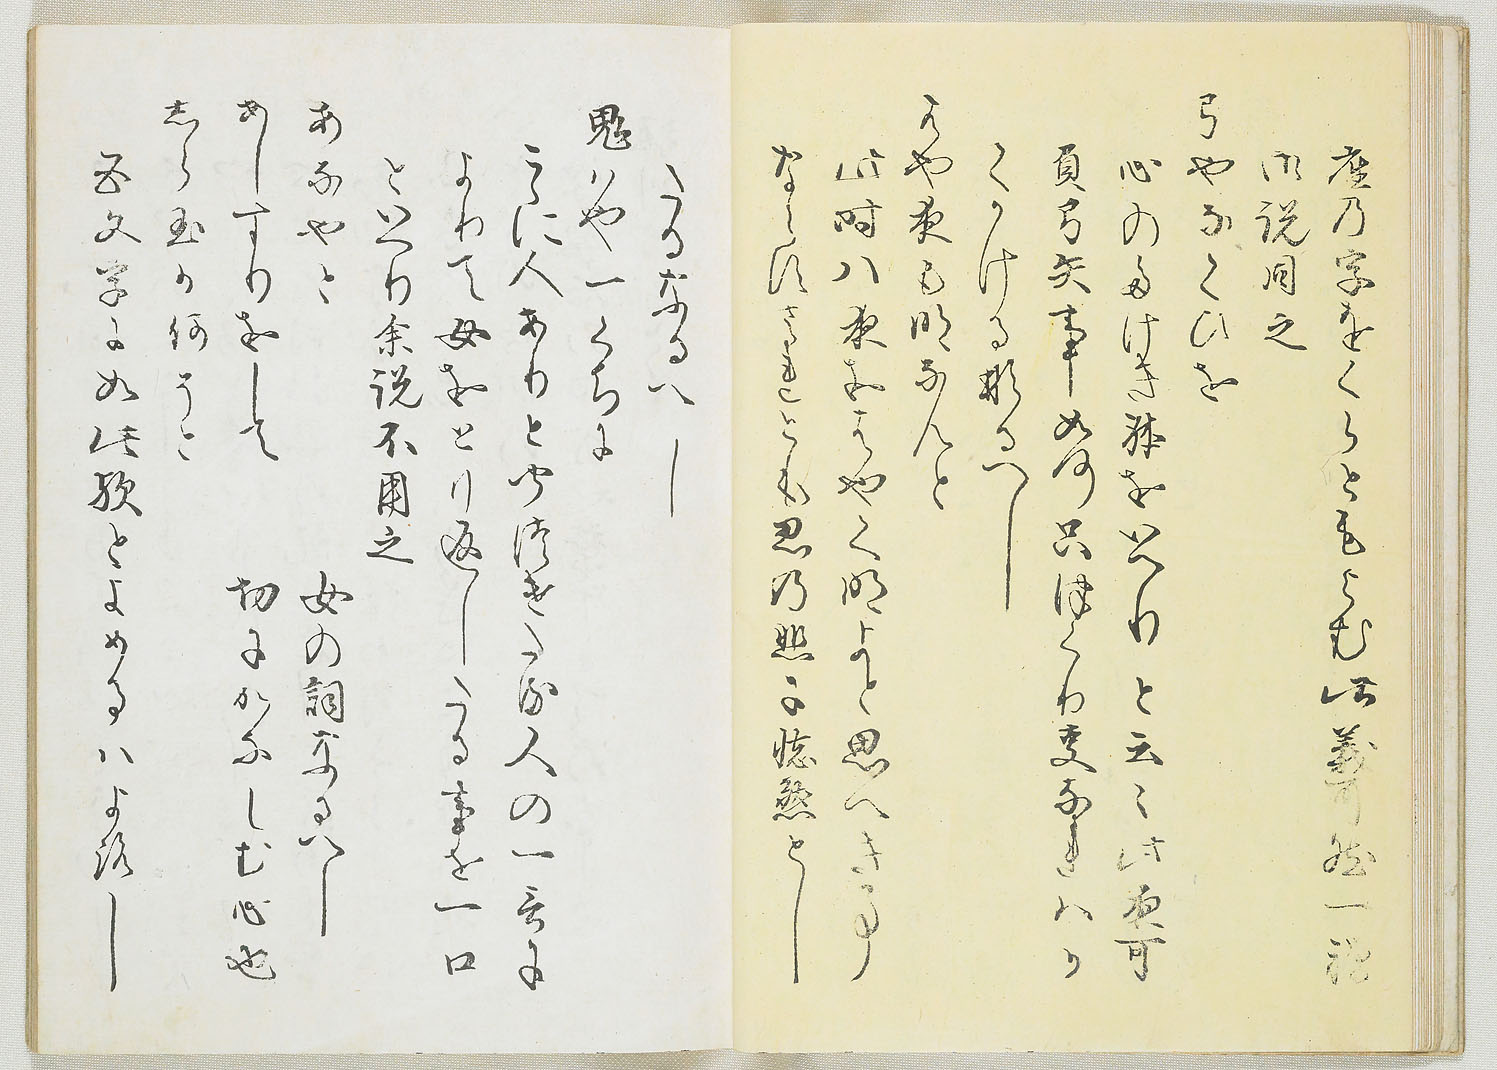 座乃字をくらともよむ此義可然一禅
御説同之
弓やなくひを
心のたけき躰をいへりと云々此夜可
負弓矢事如何只つくり事なれはか
くかける成るへし
はや夜も明なんと
此時ハ夜はゝやく明よと思へき事
ならねされとも思乃熊に悠然とし
たるなるへし
鬼ハや一くちに
こゝに人ありとやつきたる人の一言に
よりて女をとり返したる事を一口
といへり余説不用之
あなやと　女の詞なるへし
あしすりをして　切にかなしむ心也
しら玉か何そと
五文字に如此歟とよめるハよろし